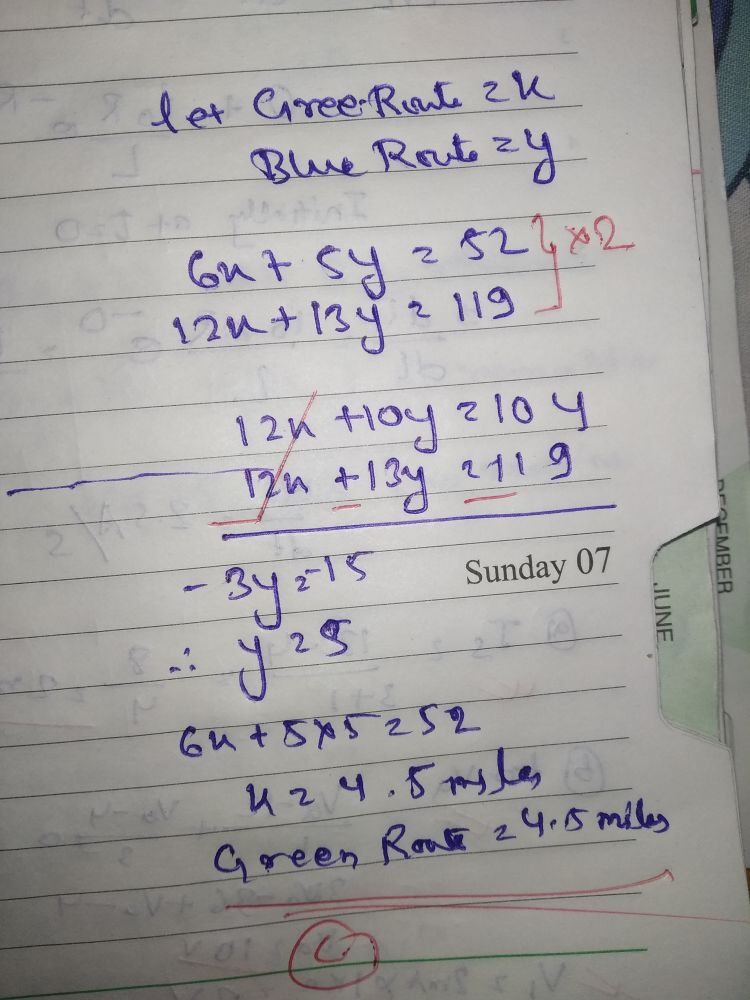 let Gree Route = x
Blue Route = y
6x + 5y = 52 } ×2
12x + 13y = 119
12x + 10y = 104
12x + 13y = 119
- 3y = -15
Sunday 07
∴ y = 5
6x + 5×5 = 52
x = 4.5 miles
Green Route = 4.5 miles
C
JUNE
DECEMBER